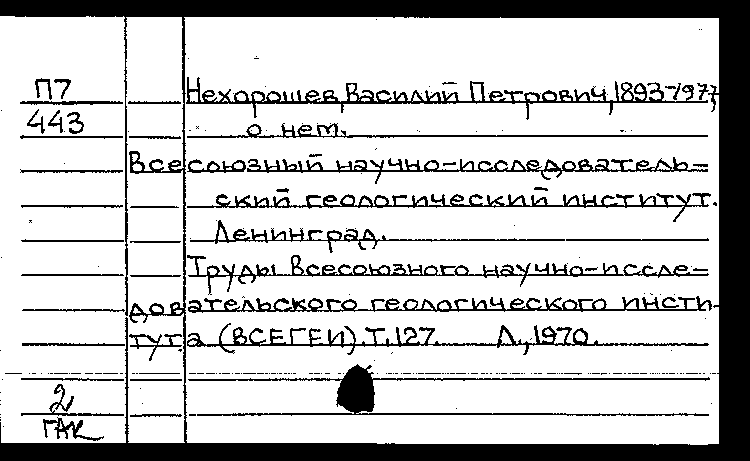 П7
443
Нехорошев, Василий Петрович, 1893-1977,
о нем.
Всесоюзный научно-исследователь-
ский геологический институт.
Ленинград.
Труды Всесоюзного научно-иссле-
довательского геологического инсти-
тута (ВСЕГЕИ). Т. 127. Л., 1970.
2
ГАК